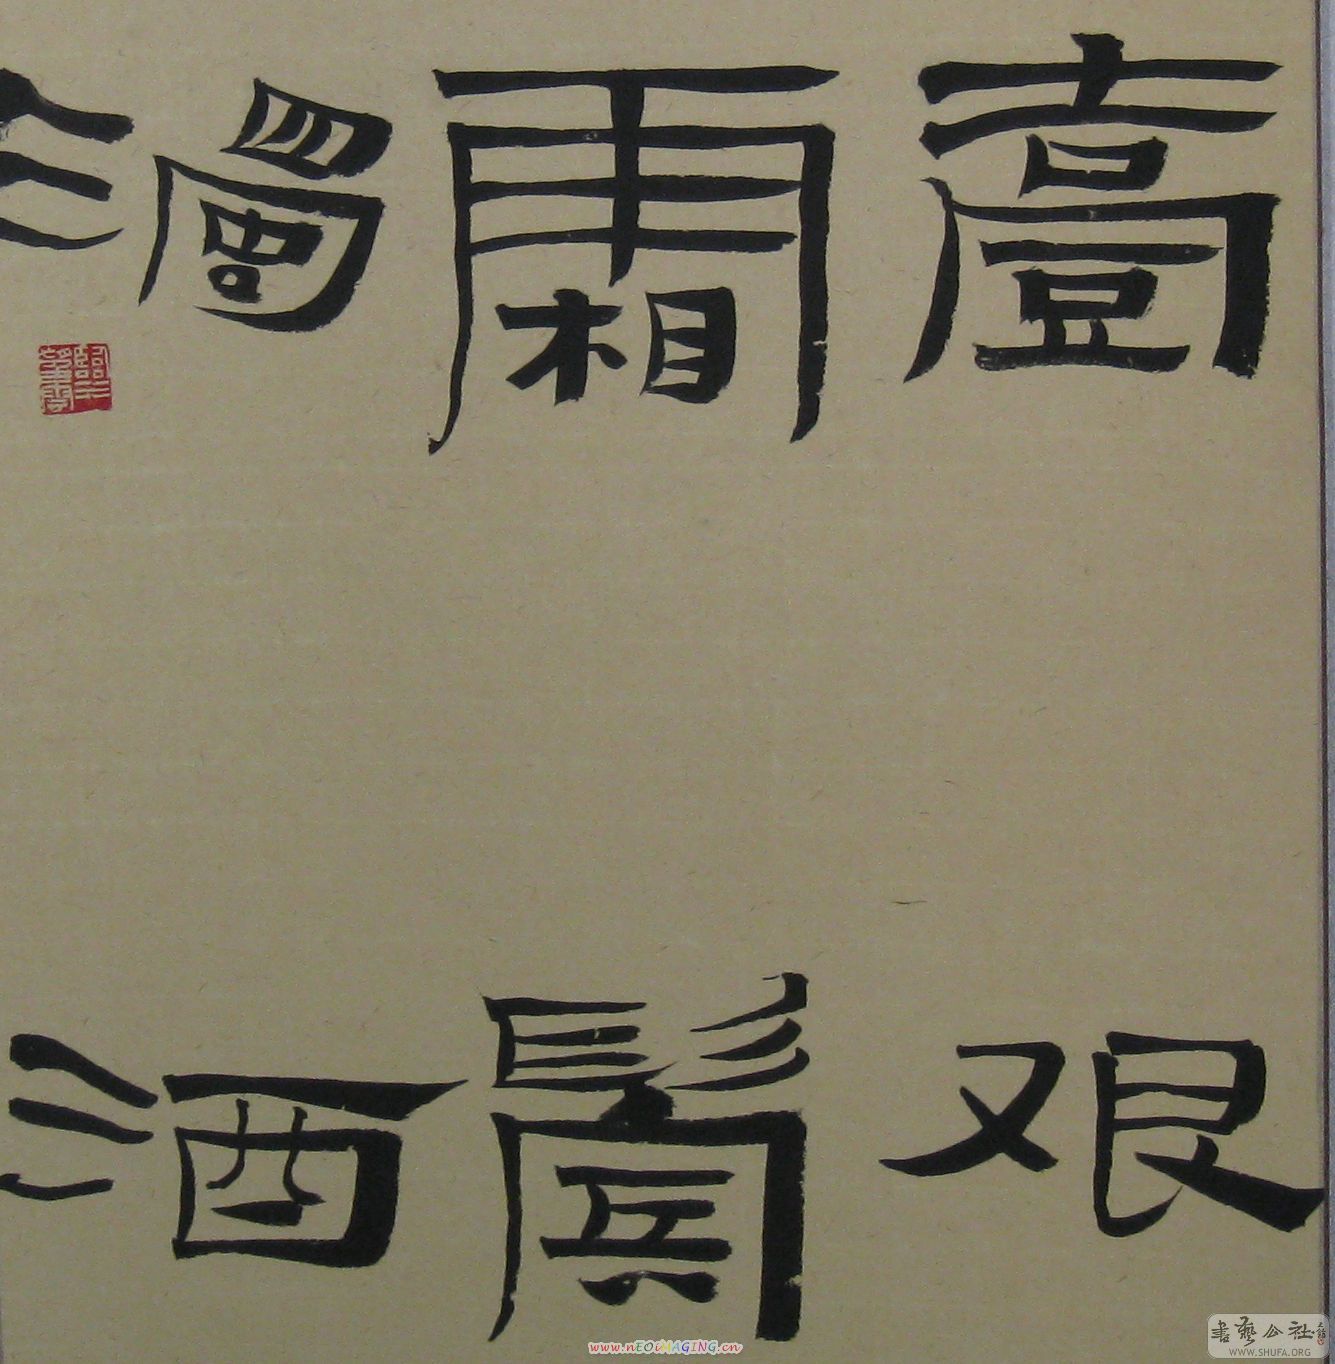 臺艰
霜鬢
濁酒
www.nEOiMAGING.cn
書藝公社
WWW.SHUFA.ORG